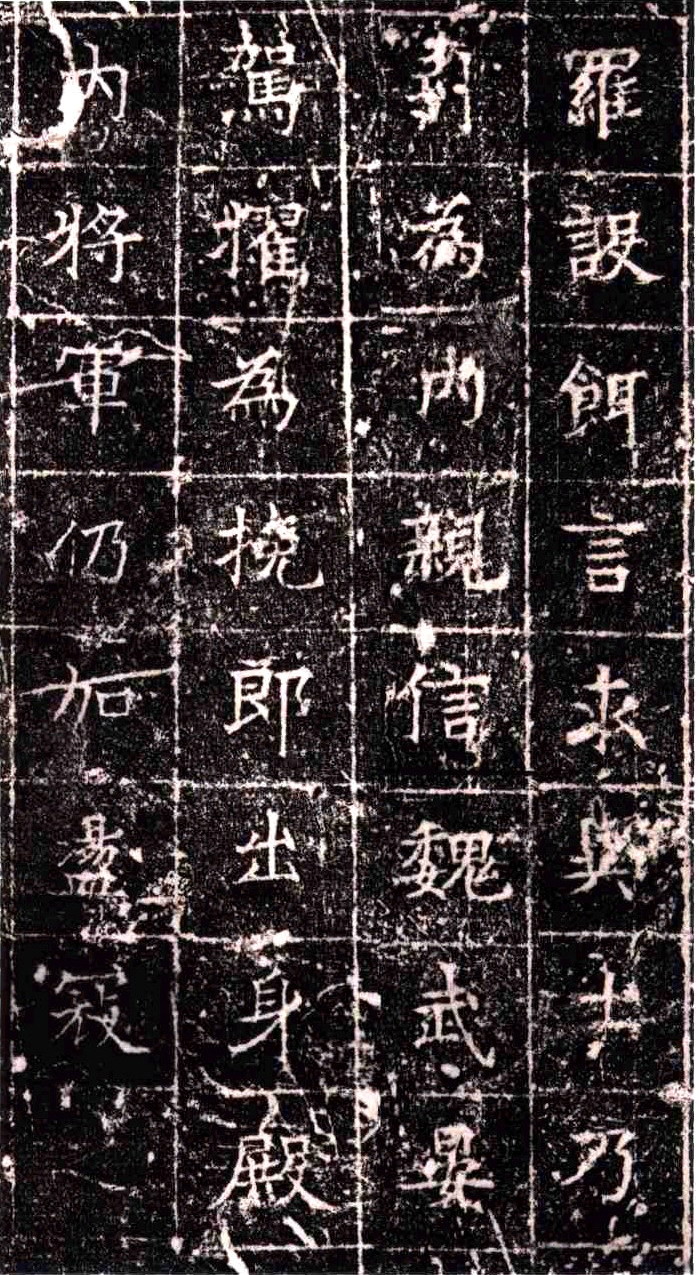 羅設餌言求與士乃
引為內親信魏武晏
駕擢為撓郎出身殿
內將軍仍加盪寇